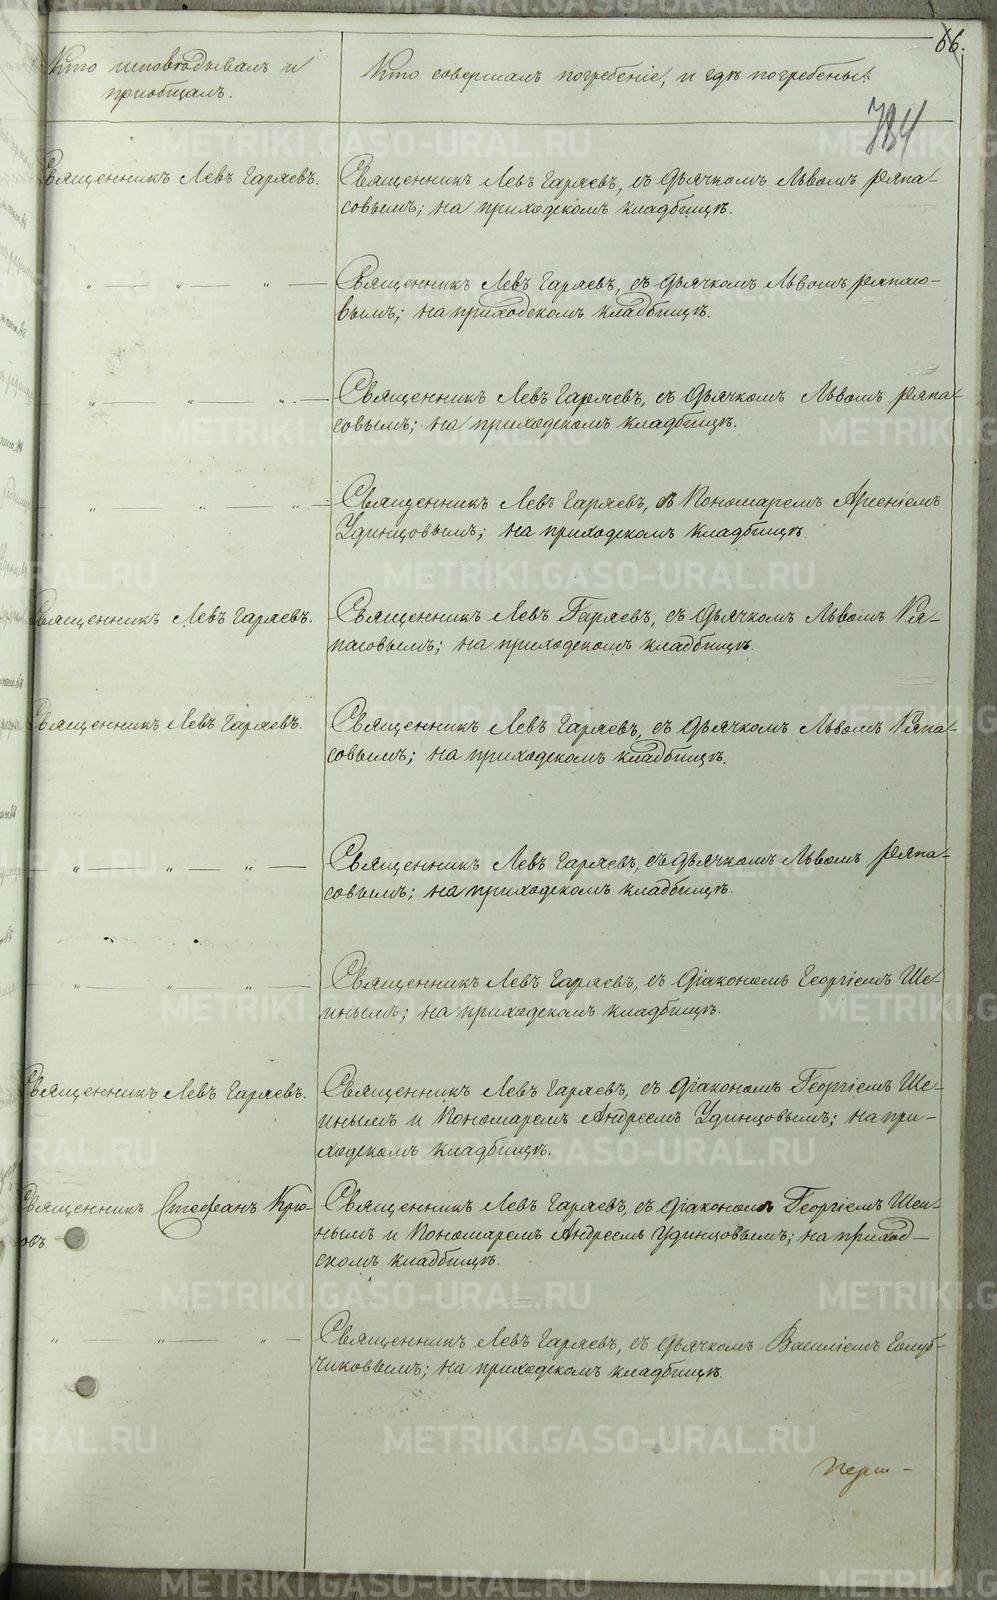 66.
784
Кто исповѣдывалъ и
приобщалъ.
Кто совершалъ погребеніе, и гдѣ погребены.
Священникъ Левъ Гаряевъ.
Священникъ Левъ Гаряевъ, съ дьячкомъ Львомъ Ряпа-
совымъ; на приходскомъ кладбищѣ.
" — " — " —
Священникъ Левъ Гаряевъ, съ дьячкомъ Львомъ Ряпасо-
вымъ; на приходскомъ кладбищѣ.
" — " — " —
Священникъ Левъ Гаряевъ, съ дьячкомъ Львомъ Ряпа-
совымъ; на приходскомъ кладбищѣ.
" " " —
Священникъ Левъ Гаряевъ, съ Пономаремъ
Удинцовымъ; на приходскомъ кладбищѣ.
Священникъ Левъ Гаряевъ.
Священникъ Левъ Гаряевъ, съ дьячкомъ Львомъ Ря-
пасовымъ; на приходскомъ кладбищѣ.
Священникъ Левъ Гаряевъ.
Священникъ Левъ Гаряевъ, съ дьячкомъ Львомъ Ряпа-
совымъ; на приходскомъ кладбищѣ.
" — " — " —
Священникъ Левъ Гаряевъ, съ дьячкомъ Львомъ Ряпа-
совымъ; на приходскомъ кладбищѣ.
" — " — " —
Священникъ Левъ Гаряевъ, съ Діакономъ Георгіемъ Ше-
инымъ; на приходскомъ кладбищѣ.
Священникъ Левъ Гаряевъ.
Священникъ Левъ Гаряевъ, съ Діакономъ Георгіемъ Ше-
инымъ и Пономаремъ Андреемъ Удинцовымъ; на при-
ходскомъ кладбищѣ.
Священникъ Стефанъ
овъ
Священникъ Левъ Гаряевъ, съ Діакономъ Георгіемъ Шеи-
нымъ и Пономаремъ Андреемъ Удинцовымъ; на приход-
скомъ кладбищѣ.
" — " — " —
Священникъ Левъ Гаряевъ, съ дьячкомъ Василіемъ Голуб-
чиковымъ; на приходскомъ кладбищѣ.
METRIKI.GASO-URAL.RU